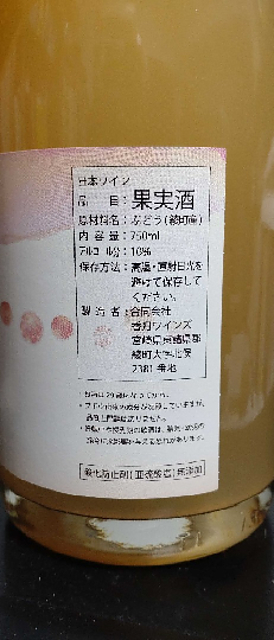 日本ワイン
品　　目：果実酒
原材料名：ぶどう(綾町産)
内 容 量：750ml
ｱﾙｺｰﾙ分：10%
保存方法：高温・直射日光を
避けて保存して
ください。
製 造 者：合同会社
香月ワインズ
宮崎県東諸県郡
綾町大字北俣
2381番地
酸化防止剤(亜硫酸塩)無添加